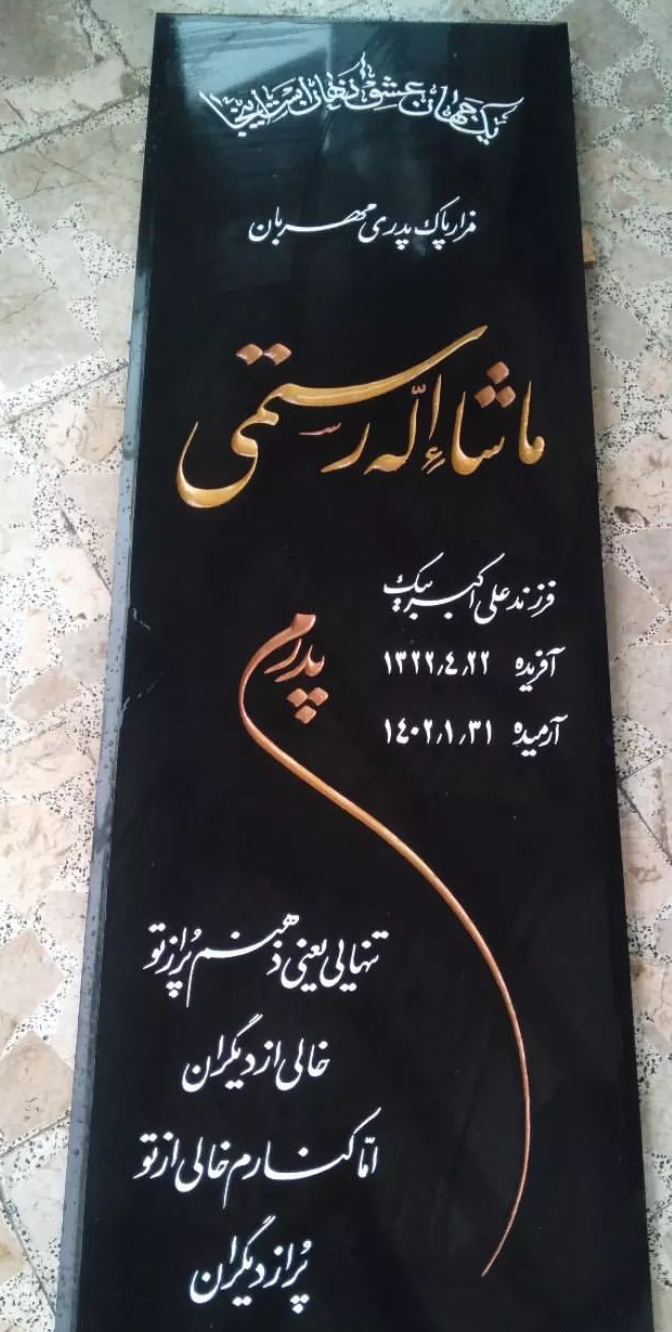 یک جهان عشق نهان است اینجا
مزار پاک پدری مهربان
ماشاءاله رستمی
فرزند علی اکبر بیک
آفریده ۱۳۲۲٫٤٫۲۲
آرمیده ۱٤۰۲٫۱٫۳۱
پدرم
تنهایی یعنی ذهنم پُر از تو
خالی از دیگران
امّا کنارم خالی از تو
پُر از دیگران